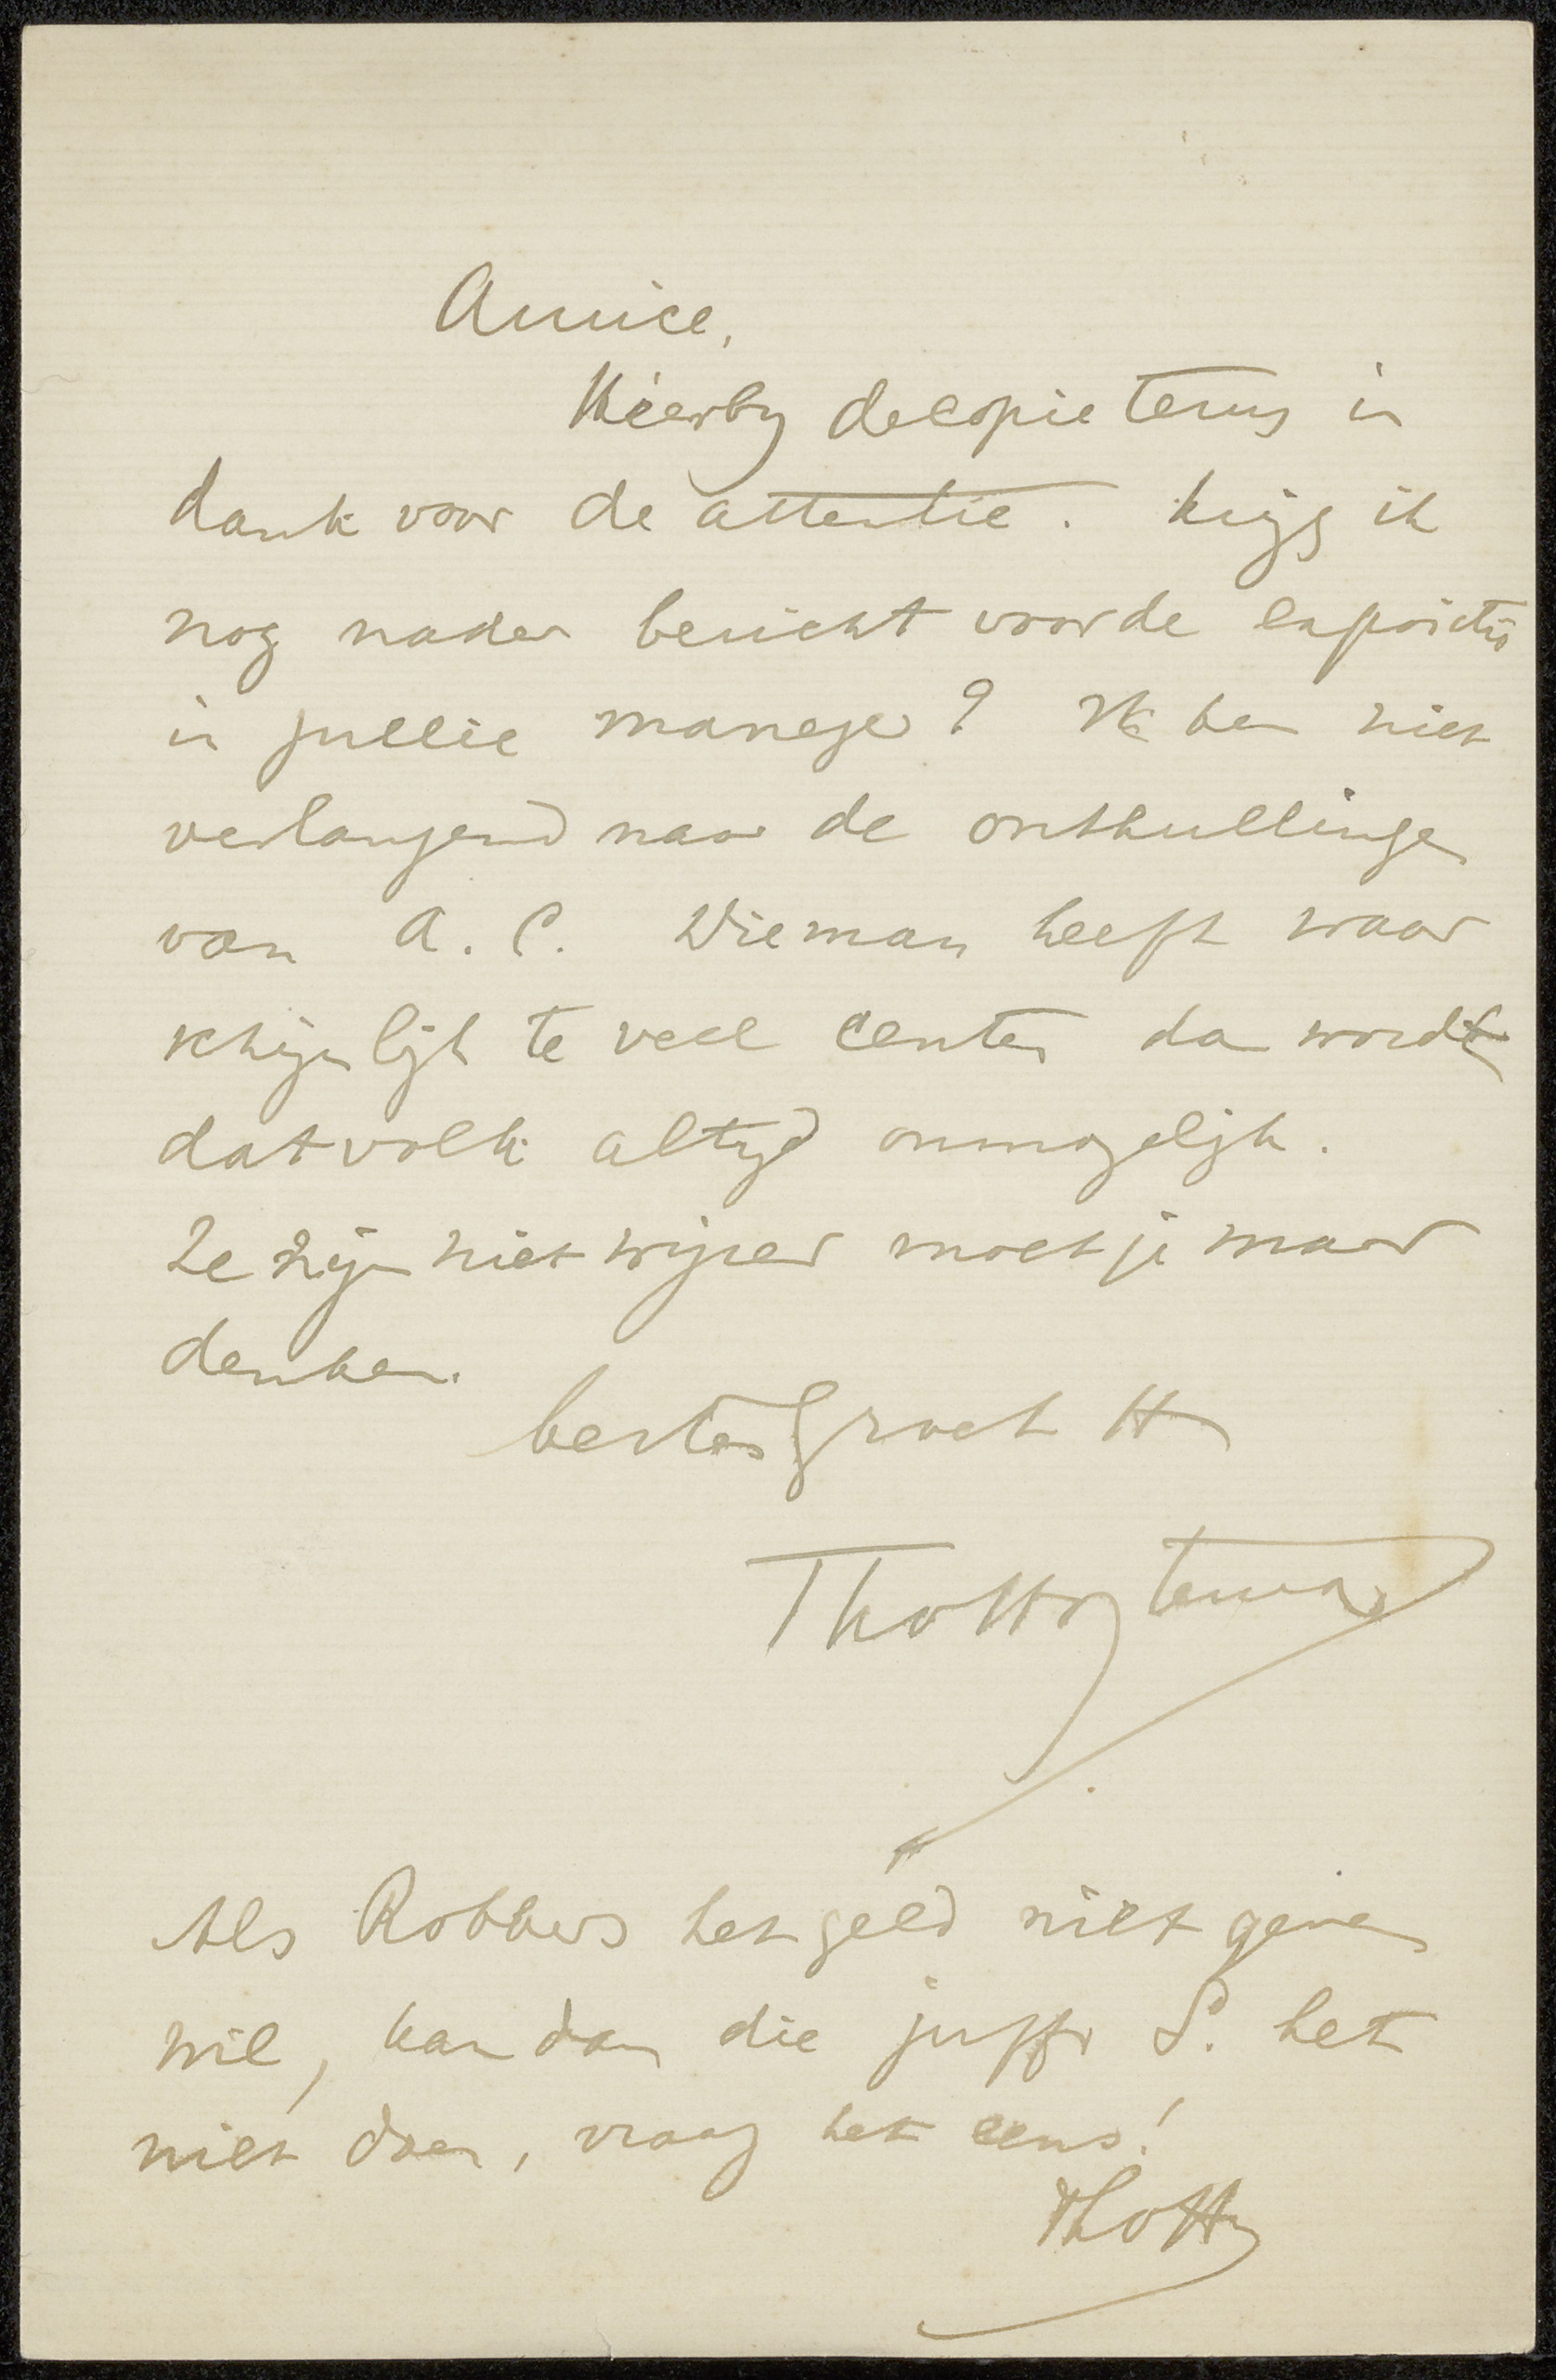 Amice,
Hierby de copie terug in
dank voor de attentie. krijg ik
nog nader bericht voor de expositie
in jullie manege? Ik ben niet
verlangend naar de onthullingen
van A. C. Die man heeft waar
schijnlijk te veel centen dan wordt
dat volk altyd onmogelijk.
Ze zijn niet wijzer moet je maar
denken.
beste groet tt
Als Robbers het geld niet geven
wil, kan dan die juffr S. het
niet doen, vraag het eens!